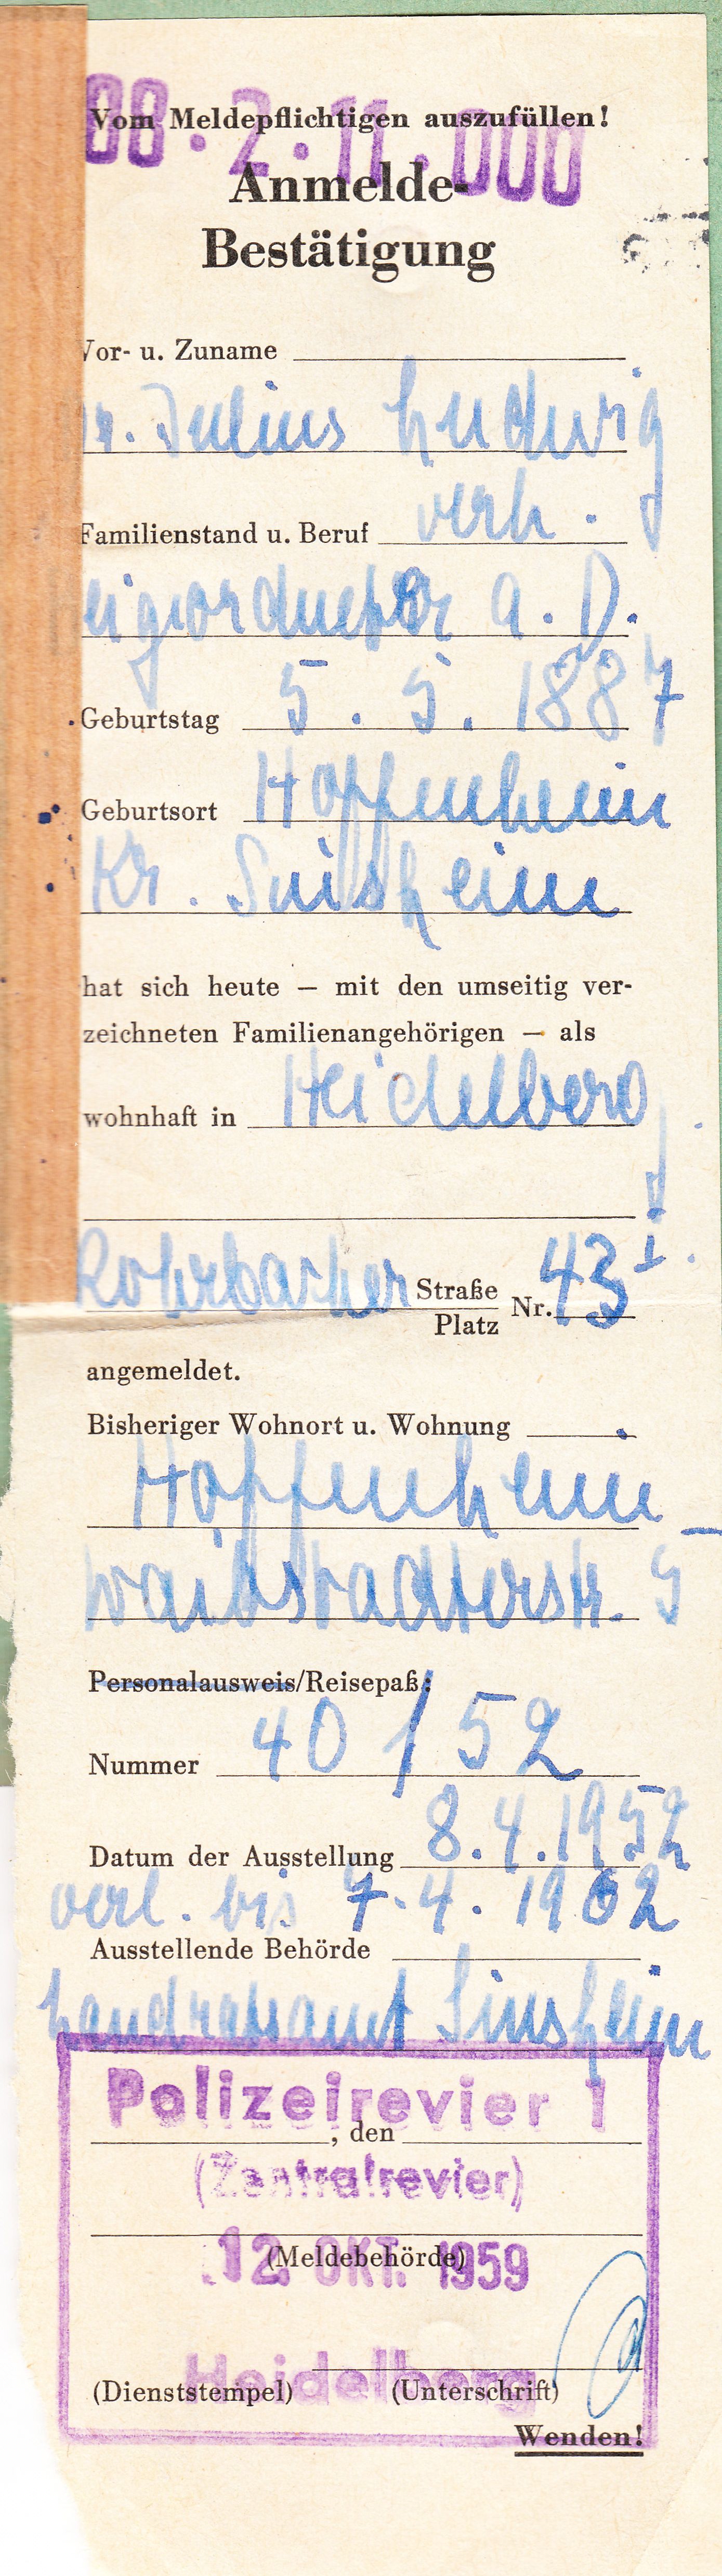 88.2.11.000
Vom Meldepflichtigen auszufüllen!
Anmelde-
Bestätigung
Vor- u. Zuname
Dr. Julius Ludwig
Familienstand u. Beruf verh.
eigeordneter a.D.
Geburtstag 5. 5. 1887
Geburtsort Hoffenheim
Kr. Sinsheim
hat sich heute – mit den umseitig ver-
zeichneten Familienangehörigen – als
wohnhaft in Heidelberg
Rohrbacher Straße Nr. 43 I.
Platz
angemeldet.
Bisheriger Wohnort u. Wohnung
Hoffenheim –
Waibstadterstr. 5
Personalausweis/Reisepaß:
Nummer 40/52
Datum der Ausstellung 8.4.1952
verl. bis 7.4.1962
Ausstellende Behörde
Landratsamt Sinsheim
Polizeirevier 1
, den
(Zentralrevier)
(Meldebehörde)
12. OKT. 1959
Heidelberg
(Dienststempel) (Unterschrift)
Wenden!